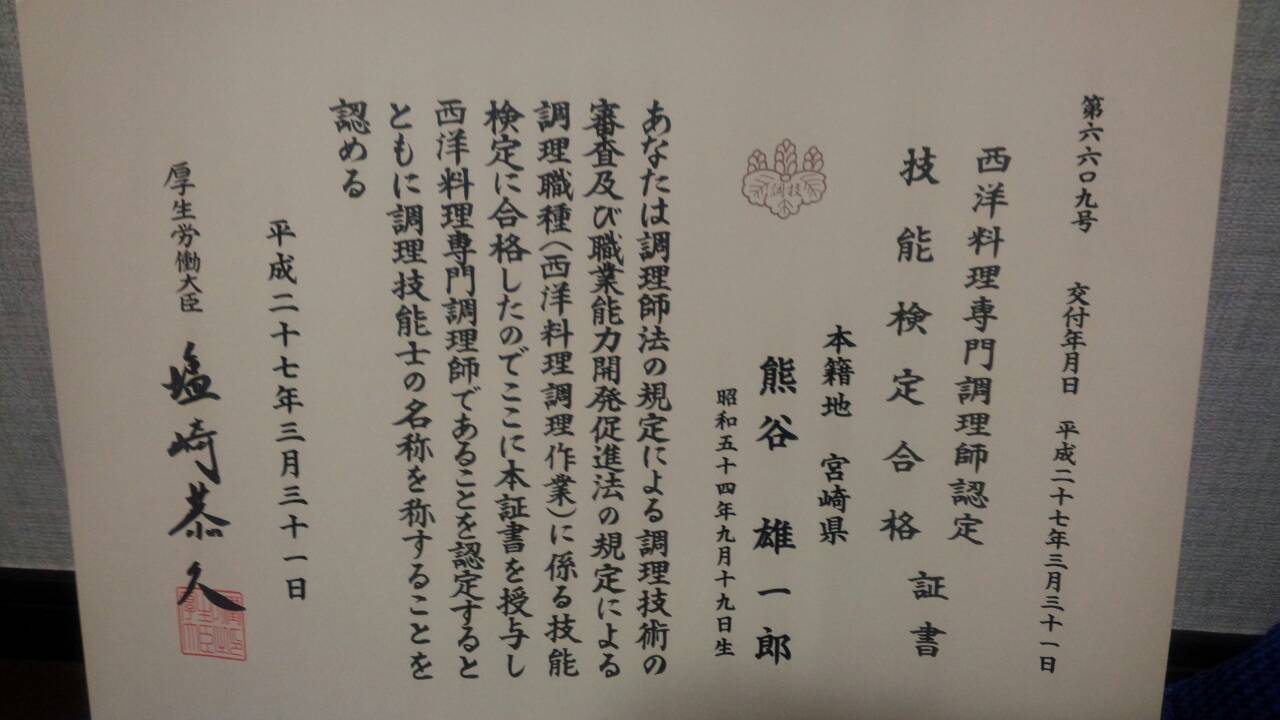 第六六〇九号 交付年月日 平成二十七年三月三十一日
西洋料理専門調理師認定
技能検定合格
証書
本籍地 宮崎県
熊谷 雄一郎
昭和五十四年九月十九日生
調技
あなたは調理師法の規定による調理技術の
審査及び職業能力開発促進法の規定による
調理職種（西洋料理調理作業）に係る技能
検定に合格したのでここに本証書を授与し
西洋料理専門調理師であることを認定すると
ともに調理技能士の名称を称することを
認める
平成二十七年三月三十一日
厚生労働大臣 塩崎恭久